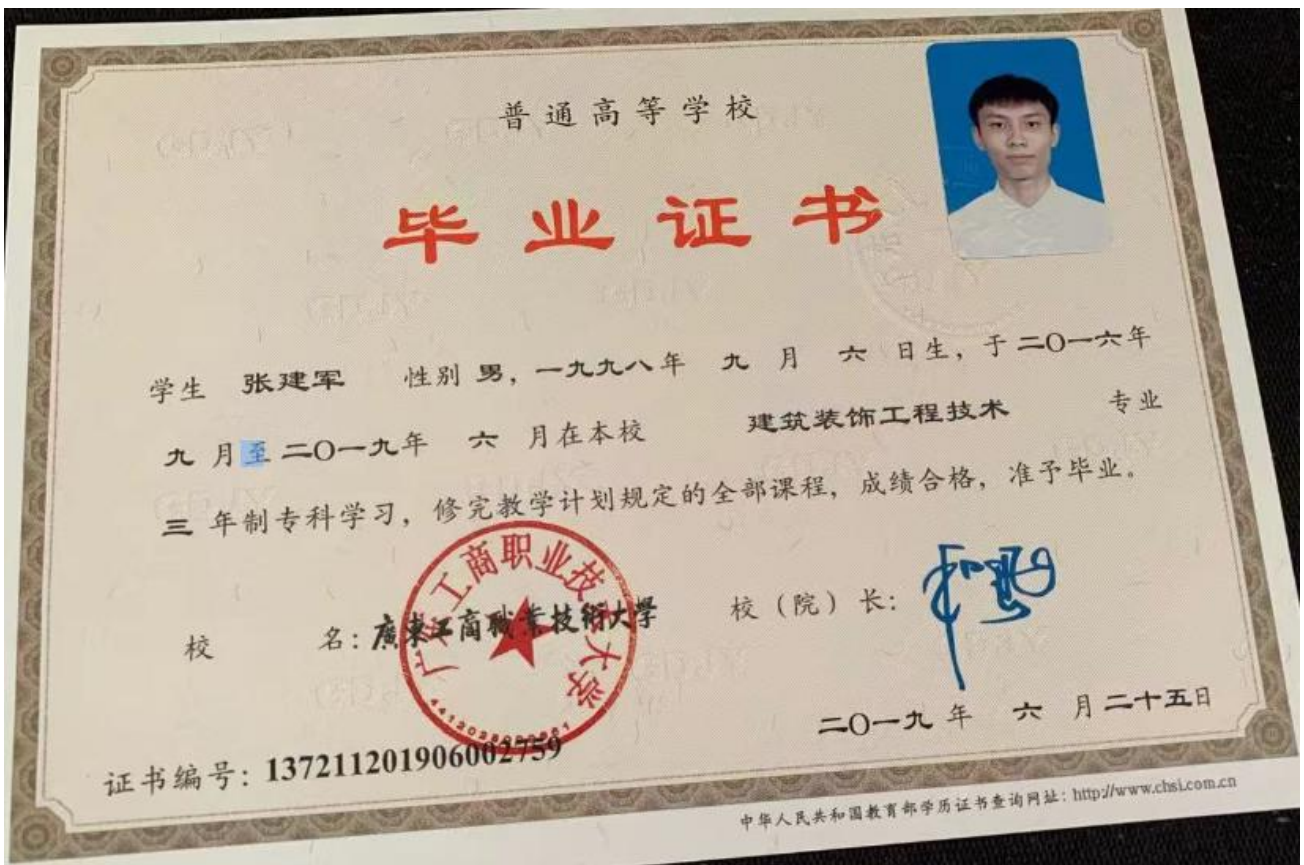 普通高等学校
毕业证书
学生 张建军 性别 男，一九九八年 九 月 六 日生，于 二〇一六年
九 月至 二〇一九年 六 月在本校 建筑装饰工程技术 专业
三 年制专科学习，修完教学计划规定的全部课程，成绩合格，准予毕业。
校 名：廣東工商職業技術大學 校（院）长：
二〇一九 年 六 月 二十五日
证书编号：137211201906002759
中华人民共和国教育部学历证书查询网址：http://www.chsi.com.cn